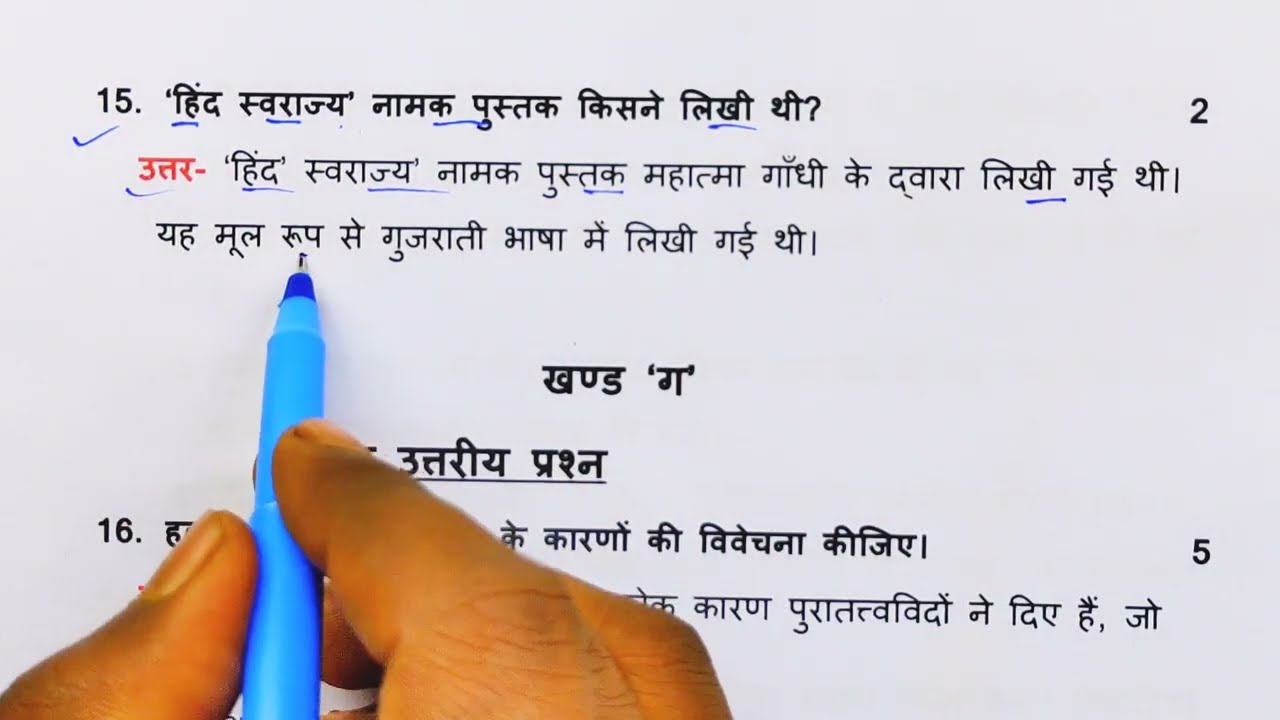 15. ‘हिंद स्वराज्य’ नामक पुस्तक किसने लिखी थी? 2
उत्तर- ‘हिंद’ स्वराज्य’ नामक पुस्तक महात्मा गाँधी के द्वारा लिखी गई थी।
यह मूल रूप से गुजराती भाषा में लिखी गई थी।
खण्ड ‘ग’
उत्तरीय प्रश्न
16. के कारणों की विवेचना कीजिए। 5
कारण पुरातत्त्वविदों ने दिए हैं, जो